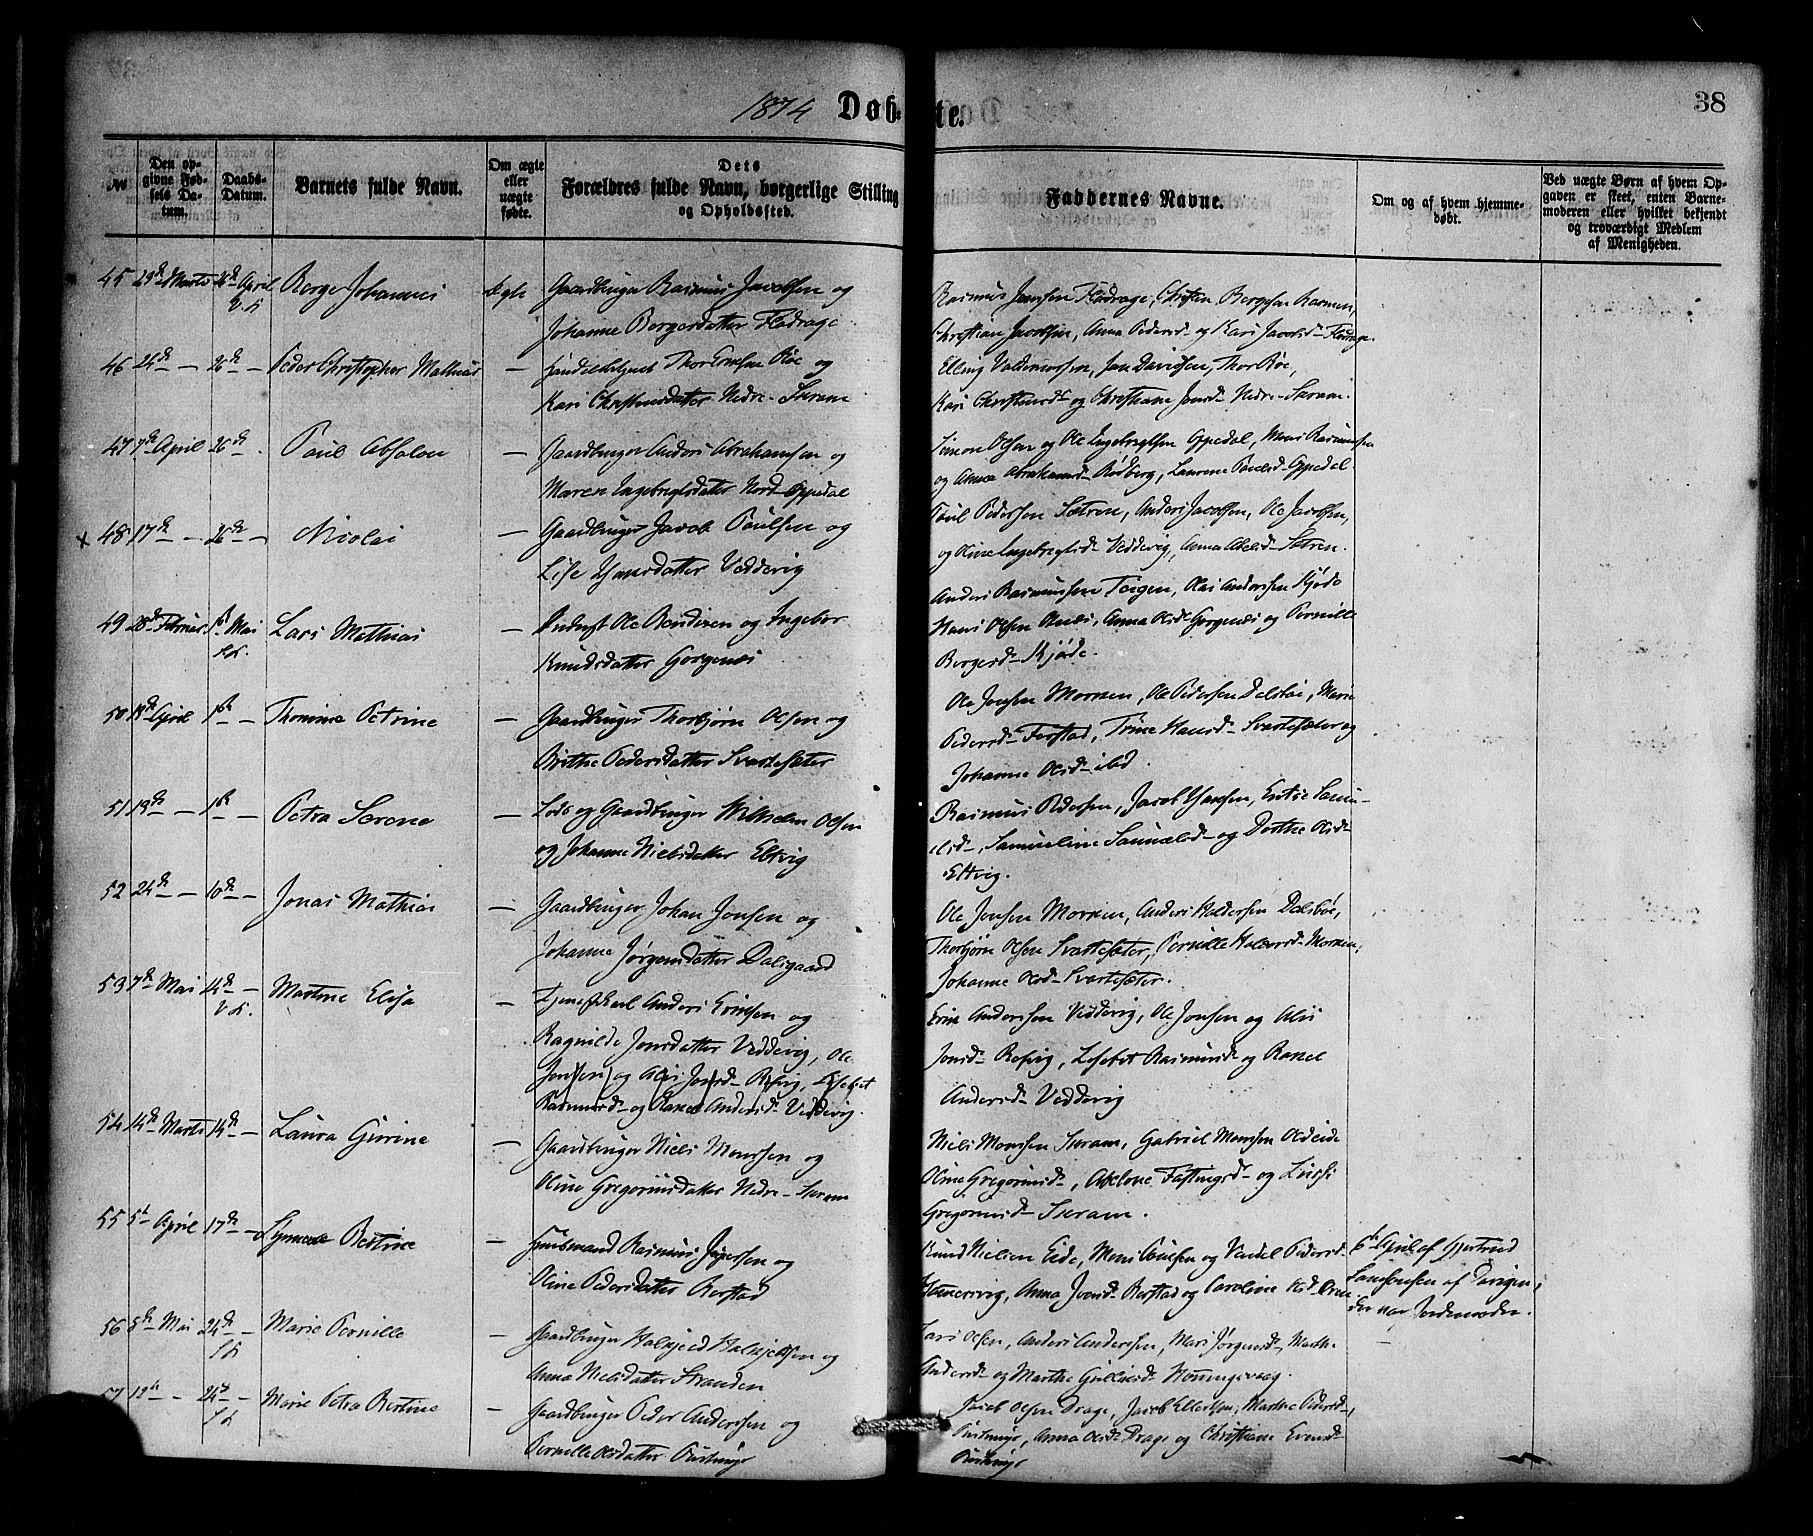 1874 Døb- te. 38
No
Den opgivne Fødsels Datum.
Daabs-Datum.
Barnets fulde Navn.
Om ægte eller uægte fødte.
Dets Forældres fulde Navn, borgerlige Stilling og Opholdssted.
Faddernes Navne.
Om og af hvem hjemmedøbt.
Ved uægte Børn af hvem Opgaven er skeet, enten Barnemoderen eller hvilket bekjendt og troværdigt Medlem af Menigheden.
45 29de Marts 26de April Børge Johannes ægte Gaardbruger Rasmus Jacobsen og
Johanne Børgersdatter Flødrage
Rasmus Jonssen Flødrage, Christen Børgesen
Christian Jacobsen, Anna Pedersd- og Kari Jacobsd- Flødrage.
46 24de — 26de — Peder Christopher Mathias — Thor og
Kari Christensdatter Nedre-
Elling Valdemorsen, Jan Davidsen, Thor
Kari Christensd- og Christiane Jonsd- Nedre-
47 7de April 26de. Paul Absalon — Gaardbruger Anders Abrahamsen og
Maren Ingebrigtsdatter Nord-Oppedal
Simon Olsen og Ole Ingebrigtsen Oppedal, Mons Rasmussen
og Anna Abrahamsd- Rødberg, Laurene Paulsd- Oppedal
x 48 17de — 26de — Nicolai — Gaardbruger Jacob Paulsen og
Lise Hansdatter Veddevig
Paul Pedersen Sætren, Anders Jacobsen, Ole Jacobsen,
og Oline Ingebrigtsd- Veddevig, Anna Abelsd- Sætren.
49 28de Februar 1ste Mai Lars Mathias — Ole og Ingebor
Knudsdatter Gorgenæs
Anders Rasmussen Teigen, Olai Anderssen Kjøde
Hans Olsen Anna Olsd- Gorgenæs og Pernille
Børgersd- Kjøde.
50 19de April 1ste — Thomine Petrine — Gaardbruger Thorbjørn Olsen og
Brithe Pedersdatter Svartesæter
Ole Jonsen Morken, Ole Pedersen Dalsbøe, Marie
Pedersd- Ferstad, Trine Hansd- Svartesæter og
Johanne Olsd- ibd.
51 19de — 1ste — Petra Serene — Lods og Gaardbruger Wilhelm Olsen
og Johanne Nielsdatter Ettvig
Rasmus Pedersen, Jacob Hansen,
Samueline Samuelsd- og Dorthe Olsd-
Ettvig.
52 24de — 10de — Jonas Mathias — Gaardbruger Johan Jonsen og
Johanne Jørgensdatter Dalsgaard
Ole Jonsen Morken, Anders Haldorsen Dalsbøe,
Thorbjørn Olsen Svartesæter, Pernille Morken,
Johanne Olsd- Svartesæter.
53 7de Mai 14de — Martine Elisa — Tjenestekarl Anders Ericsen og
Ragnilde Jonsdatter Veddevig, Ole
Jonssen og Alis Jonsd- Refvig, Lisebet
Rasmusd- og Rakel Andersd- Veddevig.
Eric Anderssen Veddevig, Ole Jonsen og Alis
Jonsd- Refvig, Lisebet Rasmusd- og Rakel
Andersd- Veddevig
54 14de Marts 14de — Laura Gurine — Gaardbruger Niels Monssen og
Oline Gregoriusdatter Nedre-
Niels Monssen Gabriel Monssen Oldeide
Oline Gregoriusd-, Abelone og
Gregoriusd-
55 5te April 17de — Bertine — Huusmand Rasmus og
Oline Pedersdatter Berstad
Knud Nielsen Eide, Mons og Pedersd-
Anna Berstad og Caroline Olsd-
6te April af Gjertrud
der var Jordemoder.
56 5te Mai 24de — Marie Pernille — Gaardbruger Halvjed Halvjedsen og
Anna Nielsdatter Stranden
Lars Olsen, Anders Anderssen, Mari Jørgensd-, Marthe
Andersd- og Marthe
57 12te — 24de — Marie Petra Bertine — Gaardbruger Peder Anderssen og
Pernille Olsdatter
Jacob Olsen Drage, Jacob Ellertsen, Pedersd-,
Anna Olsd- Drage og Christiane Evensd-